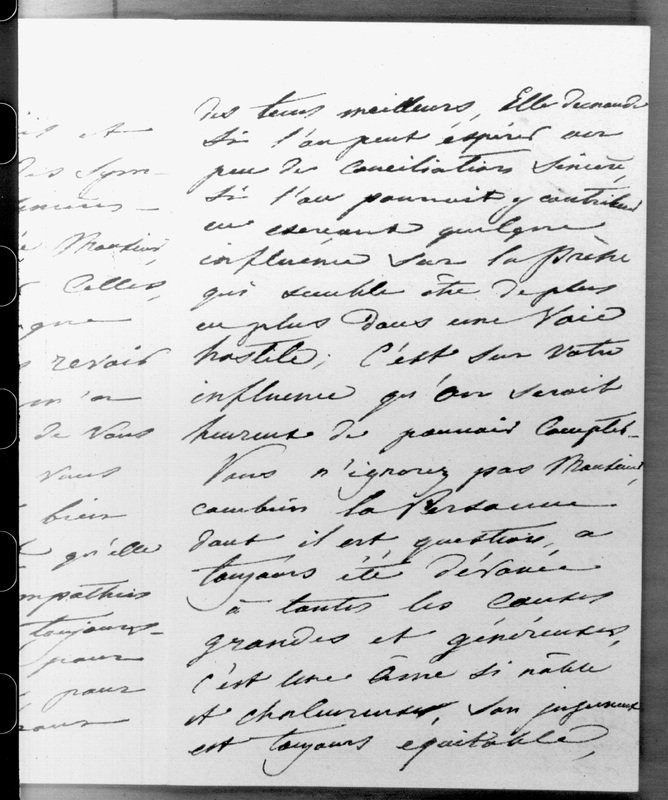 is et
des sym-
Monsieur,
Celles,
gne
revoir
m'a
de Vous
vous
bien
qu'elle
mpathies
toujours-
pour
pour
pour
des tems meilleurs, Elle demande
Si l'on peut éspérer un
peu de Conciliation Sincère,
Si l'on pourroit y contribuer
en exerçant quelque
influence Sur la Presse
qui semble être de plus
en plus Dans une Voie
hostile; C'est Sur Votre
influence qu'On Seroit
heureuse de pouvoir Compter-
Vous n'ignorez pas Monsieur,
combien la Personne
dont il est question, a
toujours été dévouée
à toutes les causes
grandes et généreuses,
c'est une âme si noble
et chaleureuse, Son jugement
est toujours equitable,